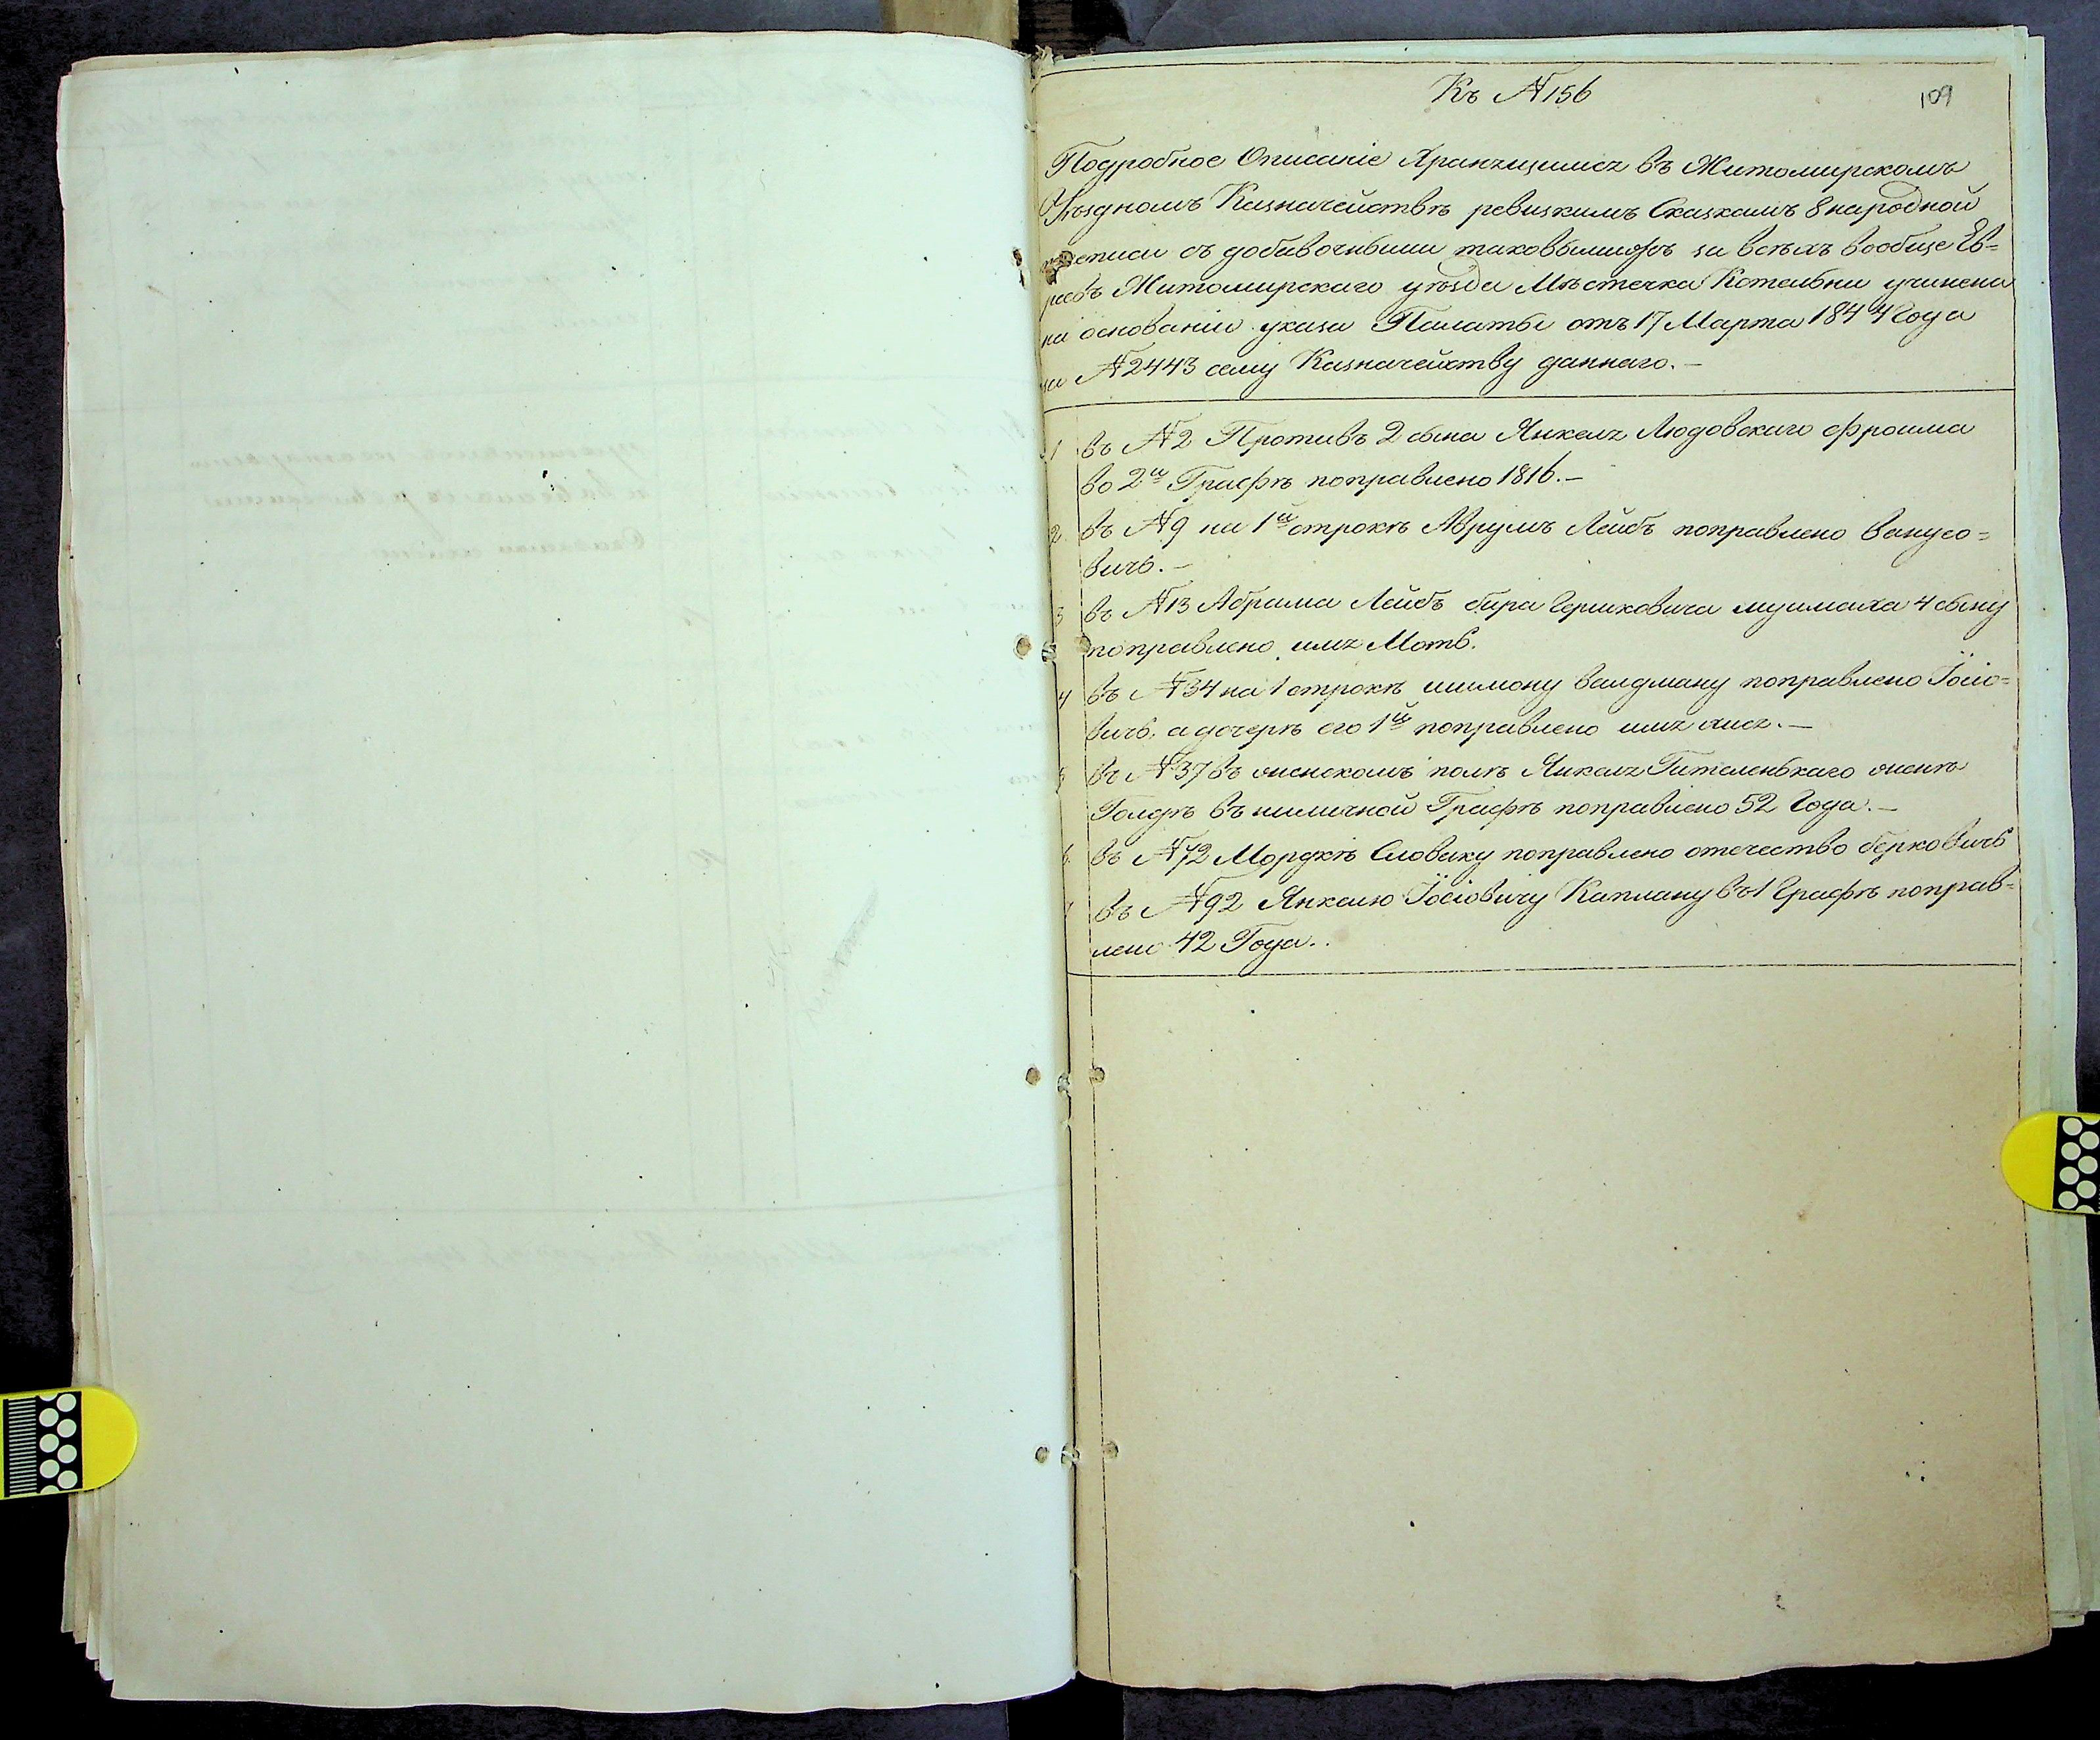 Къ № 156
109
Подробное Описаніе Хранящимся въ Житомирскомъ
Уѣздномъ Казначействѣ ревизкимъ Сказкамъ 8 народной
переписи съ добавочными таковымижъ за всѣхъ вообще Ев=
реевъ Житомирскаго уѣзда Мѣстечка Котельни учинена
на основаніи указа Палаты отъ 17 Марта 1844 Года
за № 2443 сему Казначейству даннаго.—
1 въ № 2 Противъ 2 сына Янкеля Людовскаго Фроима
во 2й Графѣ поправлено 1816.—
2 въ № 9 на 1й строкѣ Аврумъ Лейбъ поправлено
вичь.—
3 въ № 13 Абрама Лейбъ бира Гершковича 4 сыну
поправлено имя Моть.
4 въ № 34 на 1 строкѣ шимону валдману поправлено Іосіо=
вичь, а дочерѣ его 1й поправлено имя хися.—
5 въ № 37 въ женскомъ полѣ Янкеля женѣ
Голдѣ въ наличной Графѣ поправлено 52 Года.—
6 въ № 72 Мордкѣ Словаку поправлено отечество берковичь
7 въ № 92 Янкелю Іосіовичу Каплану въ 1 Графѣ поправ=
лено 42 Года..